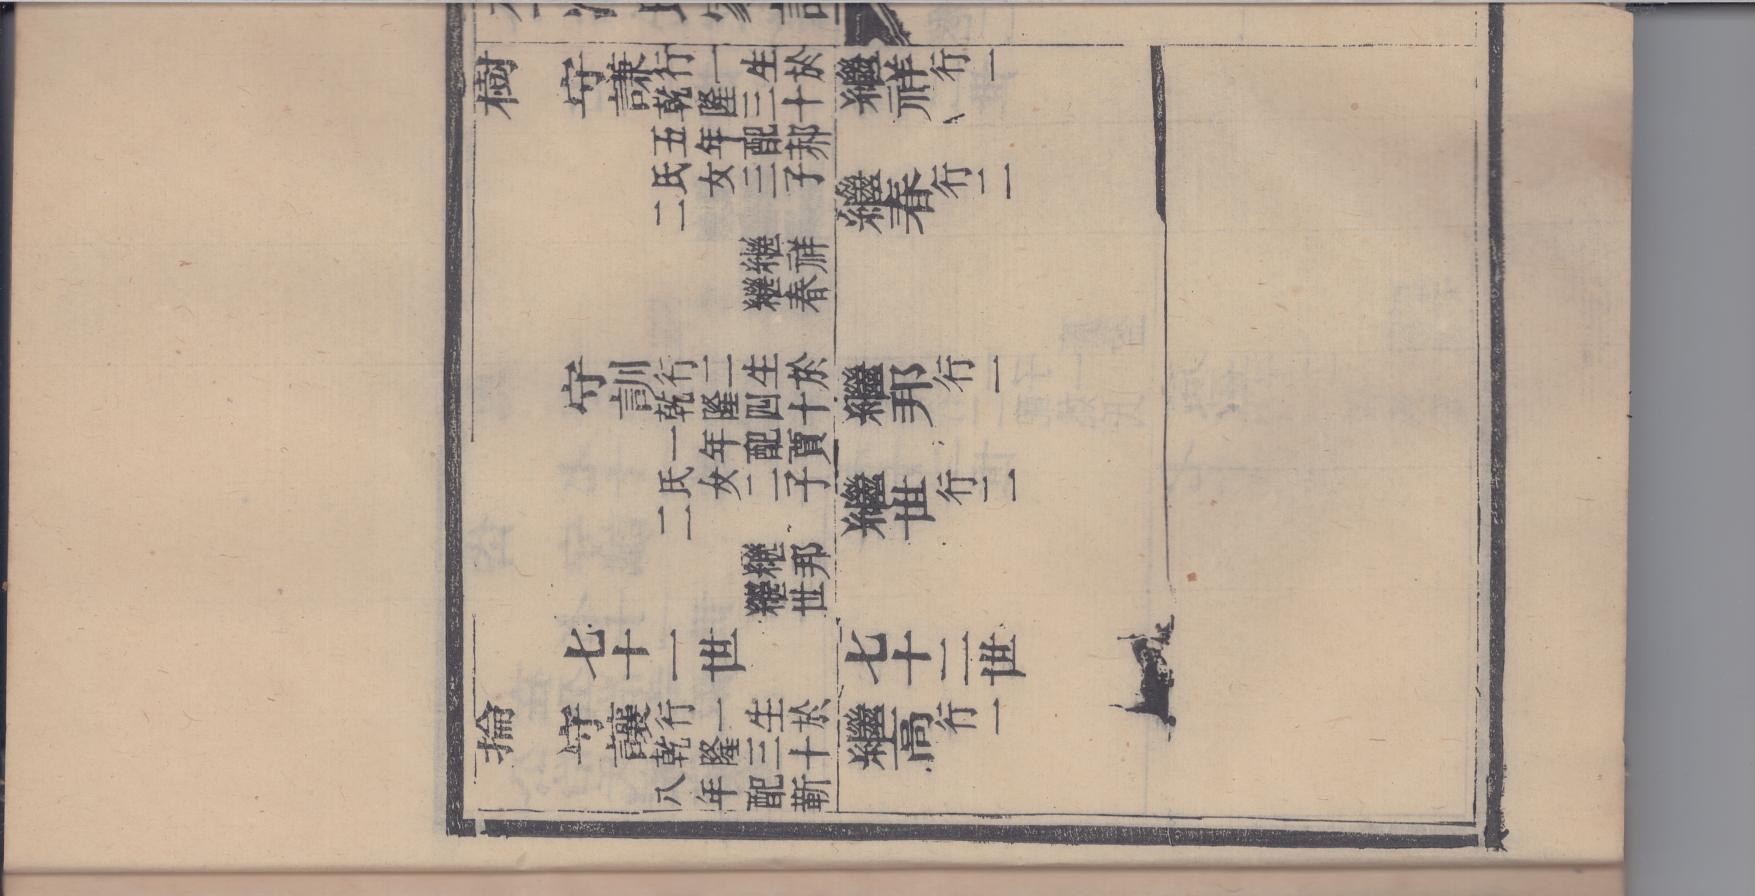 樹
守謙
行一生於
乾隆三十
五年配郝
氏女三子
二
繼祥
繼春
守訓
行二生於
乾隆四十
一年配賈
氏女二子
二
繼邦
繼世
七十二世
掄
守讓
行一生於
乾隆三十
八年配靳
繼祥 行一
繼春 行二
繼邦 行一
繼世 行二
七十三世
繼高 行一